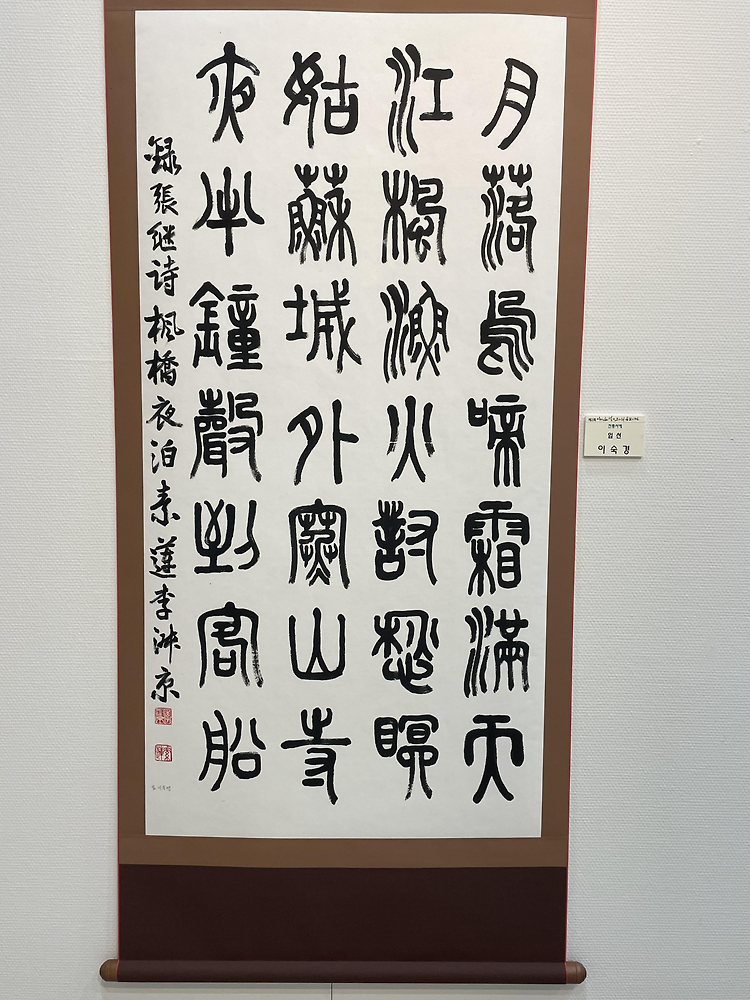 月落烏啼霜滿天
江楓漁火對愁眠
姑蘇城外寒山寺
夜半鐘聲到客船
録張継诗楓橋夜泊素蓮李淑京
입선
이숙경